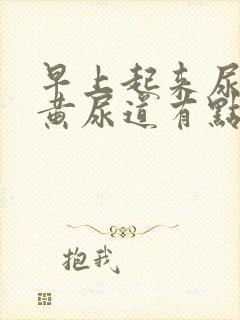 早上起来尿
黄尿道有點
抱我